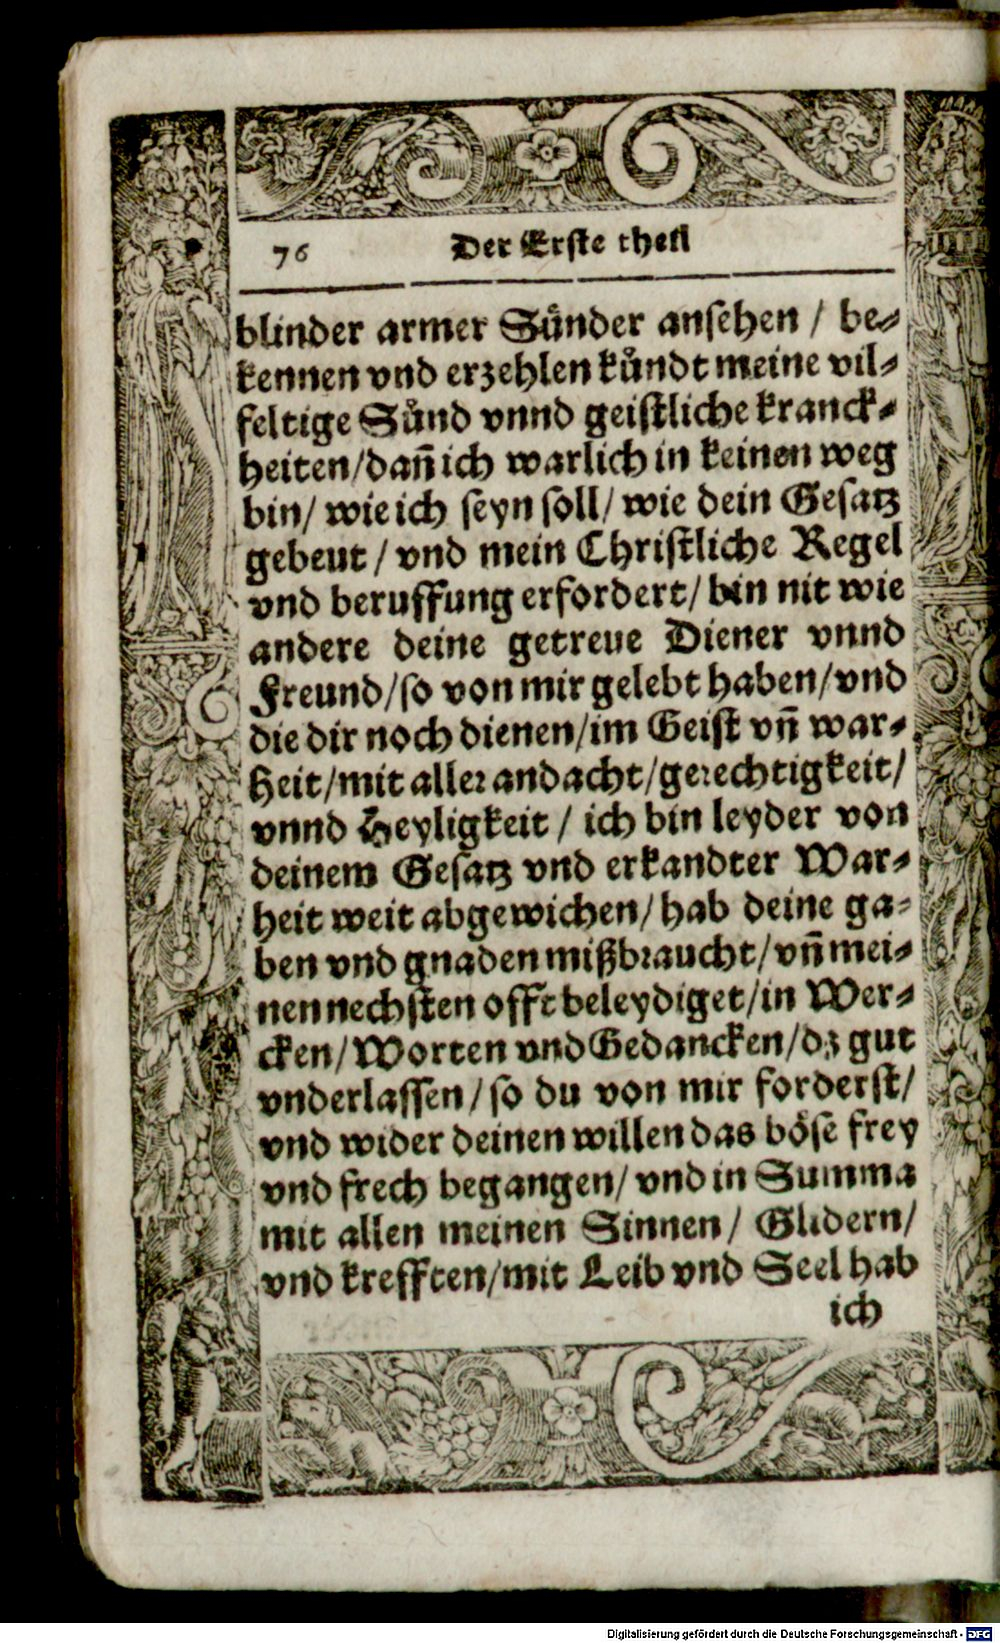 76 Der Erste theil
blinder armer Sůnder ansehen / be⸗
kennen vnd erzehlen kůndt meine vil⸗
feltige Sůnd vnnd geistliche kranck⸗
heiten/dañ ich warlich in keinen weg
bin/ wie ich seyn soll/ wie dein Gesatz
gebeut / vnd mein Christliche Regel
vnd beruffung erfordert/ bin nit wie
andere deine getreue Diener vnnd
Freund/so von mir gelebt haben/vnd
die dir noch dienen/im Geist vñ war⸗
heit/mit aller andacht/gerechtigkeit/
vnnd Heyligkeit / ich bin leyder von
deinem Gesatz vnd erkandter War⸗
heit weit abgewichen/hab deine ga⸗
ben vnd gnaden mißbraucht/vñ mei⸗
nen nechsten offt beleydiget/in Wer⸗
cken/Worten vnd Gedancken/dz gut
vnderlassen/so du von mir forderst/
vnd wider deinen willen das böse frey
vnd frech begangen/vnd in Summa
mit allen meinen Sinnen/ Glidern/
vnd krefften/mit Leib vnd Seel hab
ich
Digitalisierung gefördert durch die Deutsche Forschungsgemeinschaft - DFG